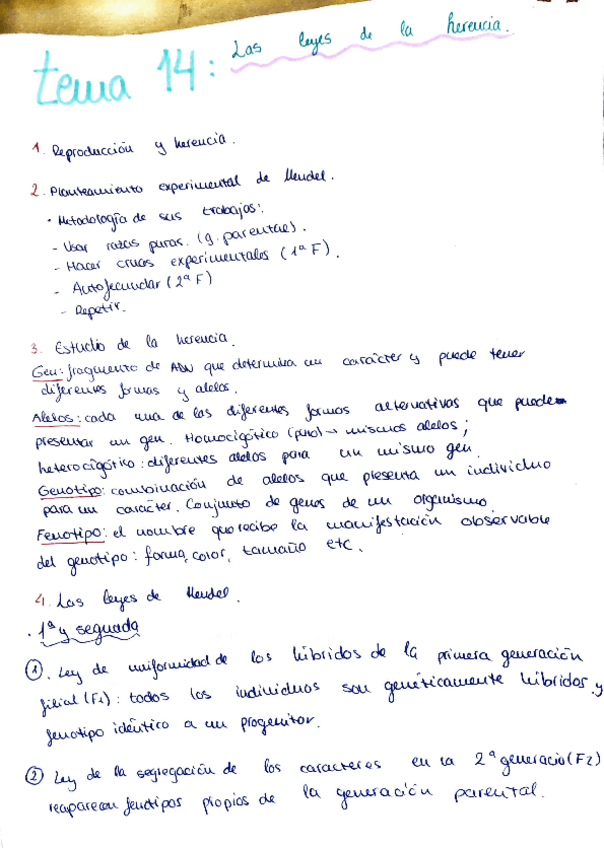 tema 14: Las leyes de la herencia.
1. Reproducción y herencia.
2. Planteamiento experimental de Mendel.
• Metodología de sus trabajos:
- Usar razas puras. (g. parental).
- Hacer cruces experimentales (1ª F).
- Autofecundar (2ª F)
- Repetir.
3. Estudio de la herencia.
Gen: fragmento de ADN que determina un carácter y puede tener
diferentes formas y alelos.
Alelos: cada una de las diferentes formas alternativas que puede
presentar un gen. Homocigótico (puro) → mismos alelos;
heterocigótico: diferentes alelos para un mismo gen.
Genotipo: combinación de alelos que presenta un individuo
para un carácter. Conjunto de genes de un organismo.
Fenotipo: el nombre que recibe la manifestación observable
del genotipo: forma, color, tamaño etc.
4. Las leyes de Mendel.
• 1ª y segunda
①. Ley de uniformidad de los híbridos de la primera generación
filial (F1): todos los individuos son genéticamente híbridos y
fenotipo idéntico a un progenitor.
② Ley de la segregación de los caracteres en la 2ª generació (F2)
reaparecen fenotipos propios de la generación parental.